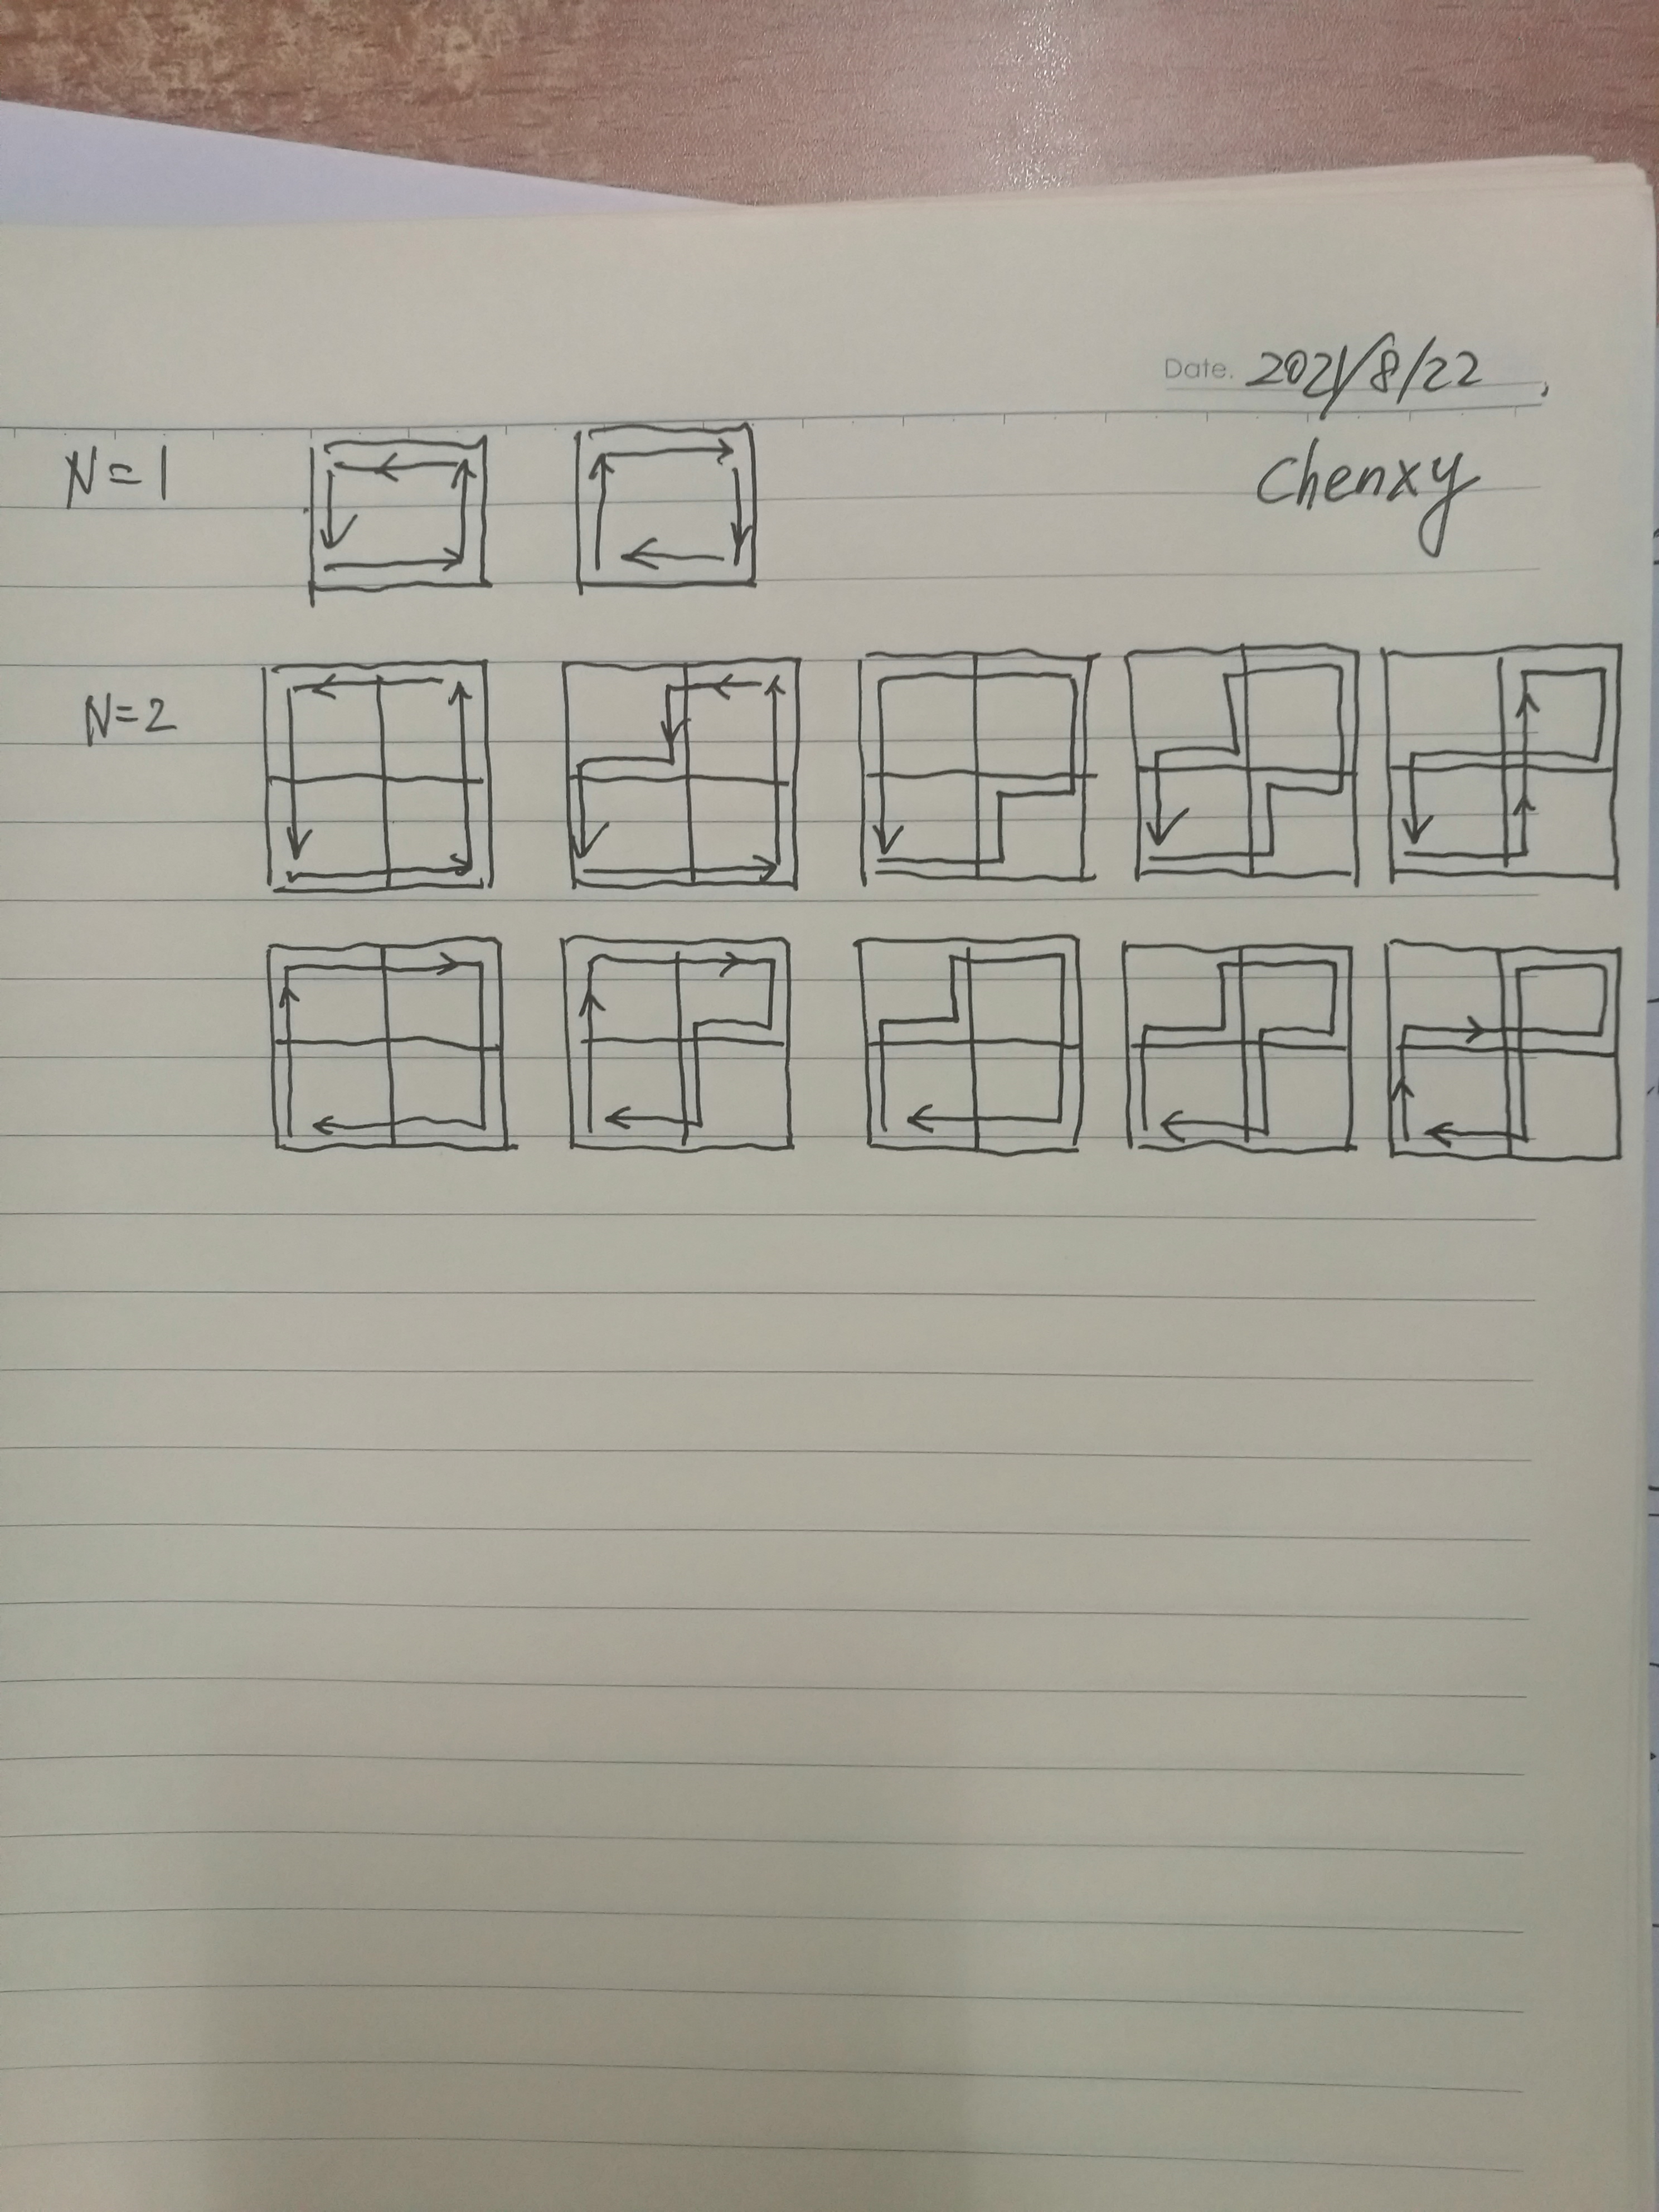 Date. 2021/8/22
N=1
Chenxy
N=2